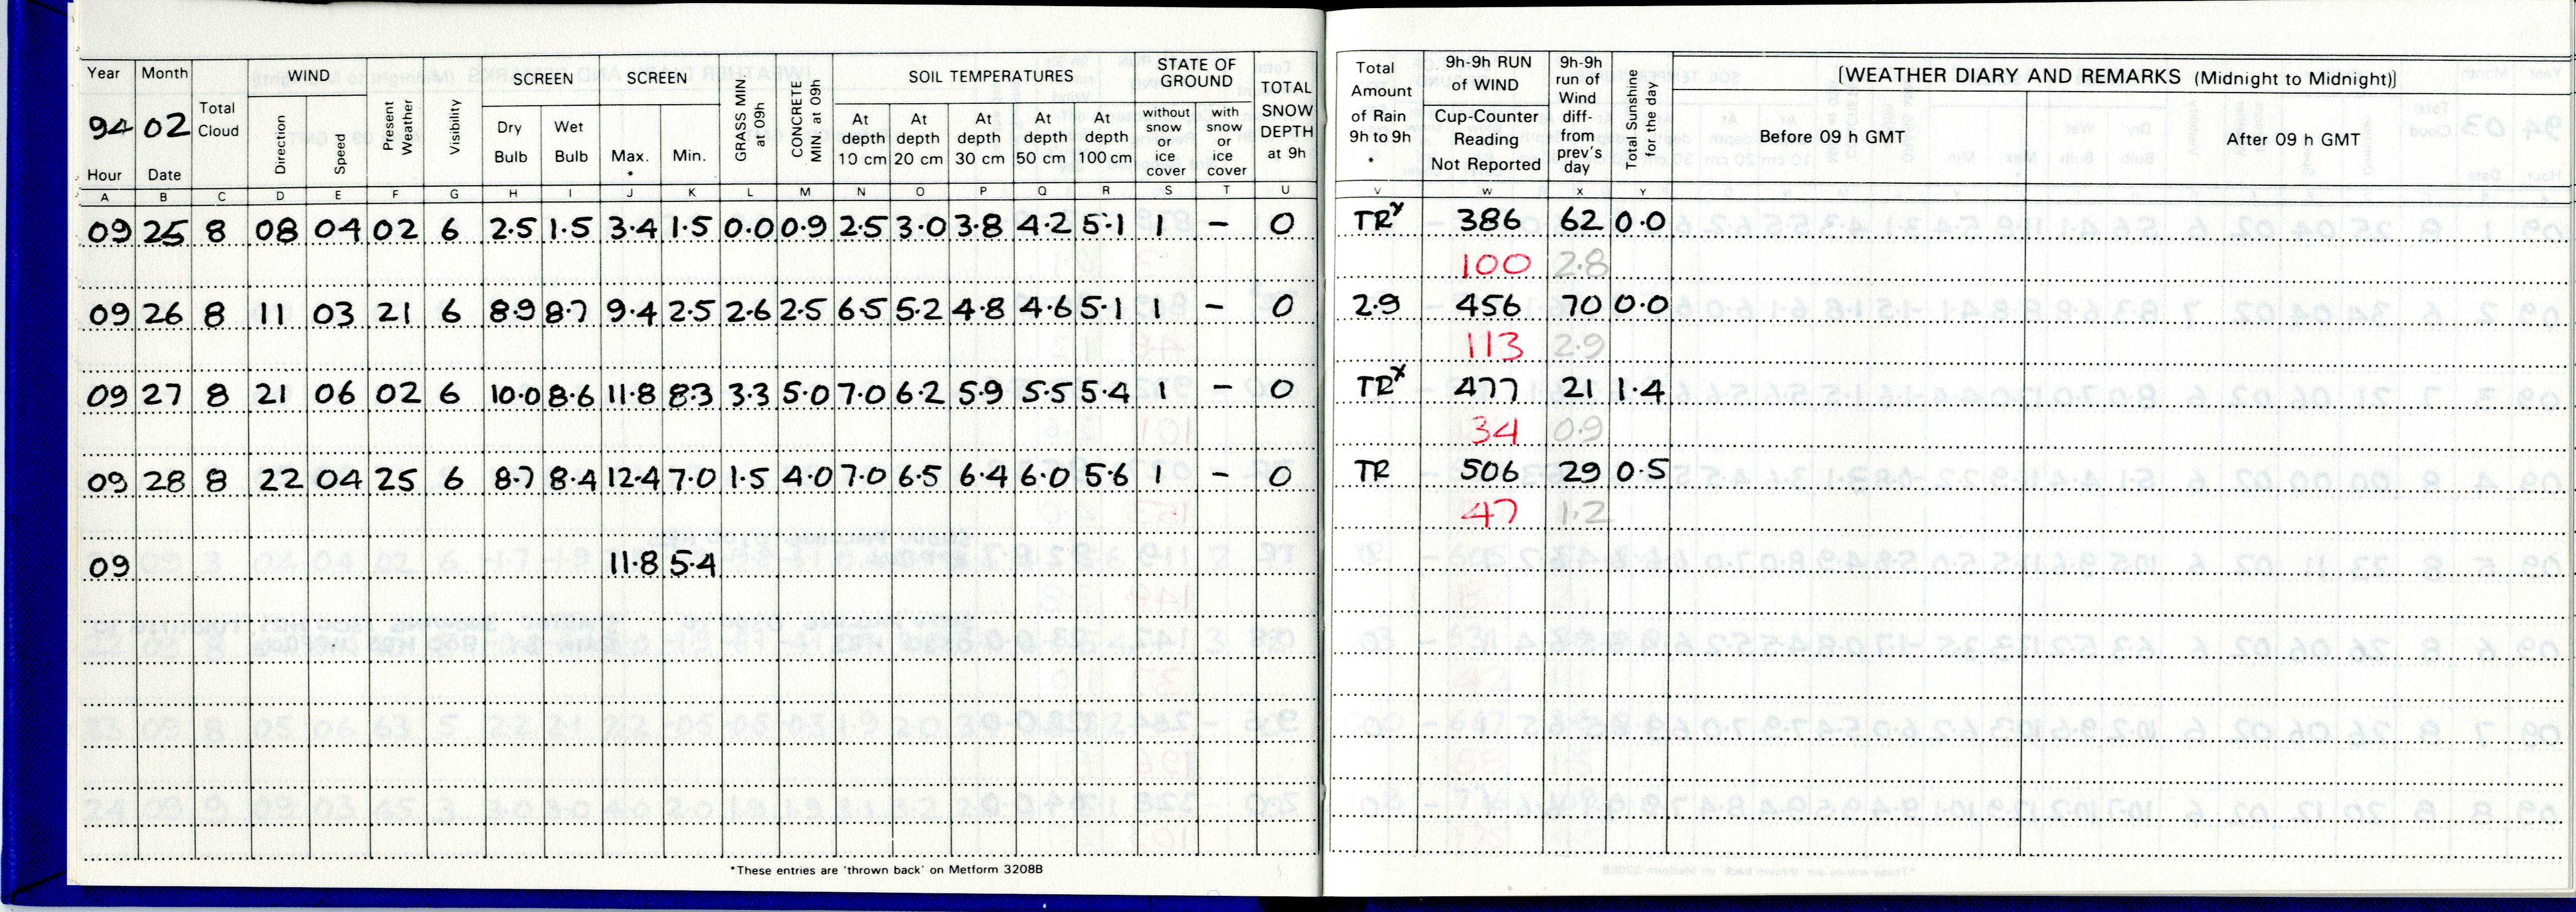 Year Month Total Cloud WIND Present Weather Visibility SCREEN SCREEN GRASS MIN at 09h CONCRETE MIN at 09h SOIL TEMPERATURES STATE OF GROUND TOTAL SNOW DEPTH at 9h
94 02 Direction Speed Dry Bulb Wet Bulb Max. * Min. At depth 10 cm At depth 20 cm At depth 30 cm At depth 50 cm At depth 100 cm without snow or ice cover with snow or ice cover
Hour Date
A B C D E F G H I J K L M N O P Q R S T U
09 25 8 08 04 02 6 2.5 1.5 3.4 1.5 0.0 0.9 2.5 3.0 3.8 4.2 5.1 1 – 0
09 26 8 11 03 21 6 8.9 8.7 9.4 2.5 2.6 2.5 6.5 5.2 4.8 4.6 5.1 1 – 0
09 27 8 21 06 02 6 10.0 8.6 11.8 8.3 3.3 5.0 7.0 6.2 5.9 5.5 5.4 1 – 0
09 28 8 22 04 25 6 8.7 8.4 12.4 7.0 1.5 4.0 7.0 6.5 6.4 6.0 5.6 1 – 0
09 11.8 5.4
*These entries are 'thrown back' on Metform 3208B
Total Amount of Rain 9h to 9h * 9h-9h RUN of WIND Cup-Counter Reading Not Reported 9h-9h run of Wind diff- from prev's day Total Sunshine for the day [WEATHER DIARY AND REMARKS (Midnight to Midnight)]
Before 09 h GMT After 09 h GMT
V W X Y
TRx 386 62 0.0
100 2.8
2.9 456 70 0.0
113 2.9
TRx 477 21 1.4
34 0.9
TR 506 29 0.5
47 1.2